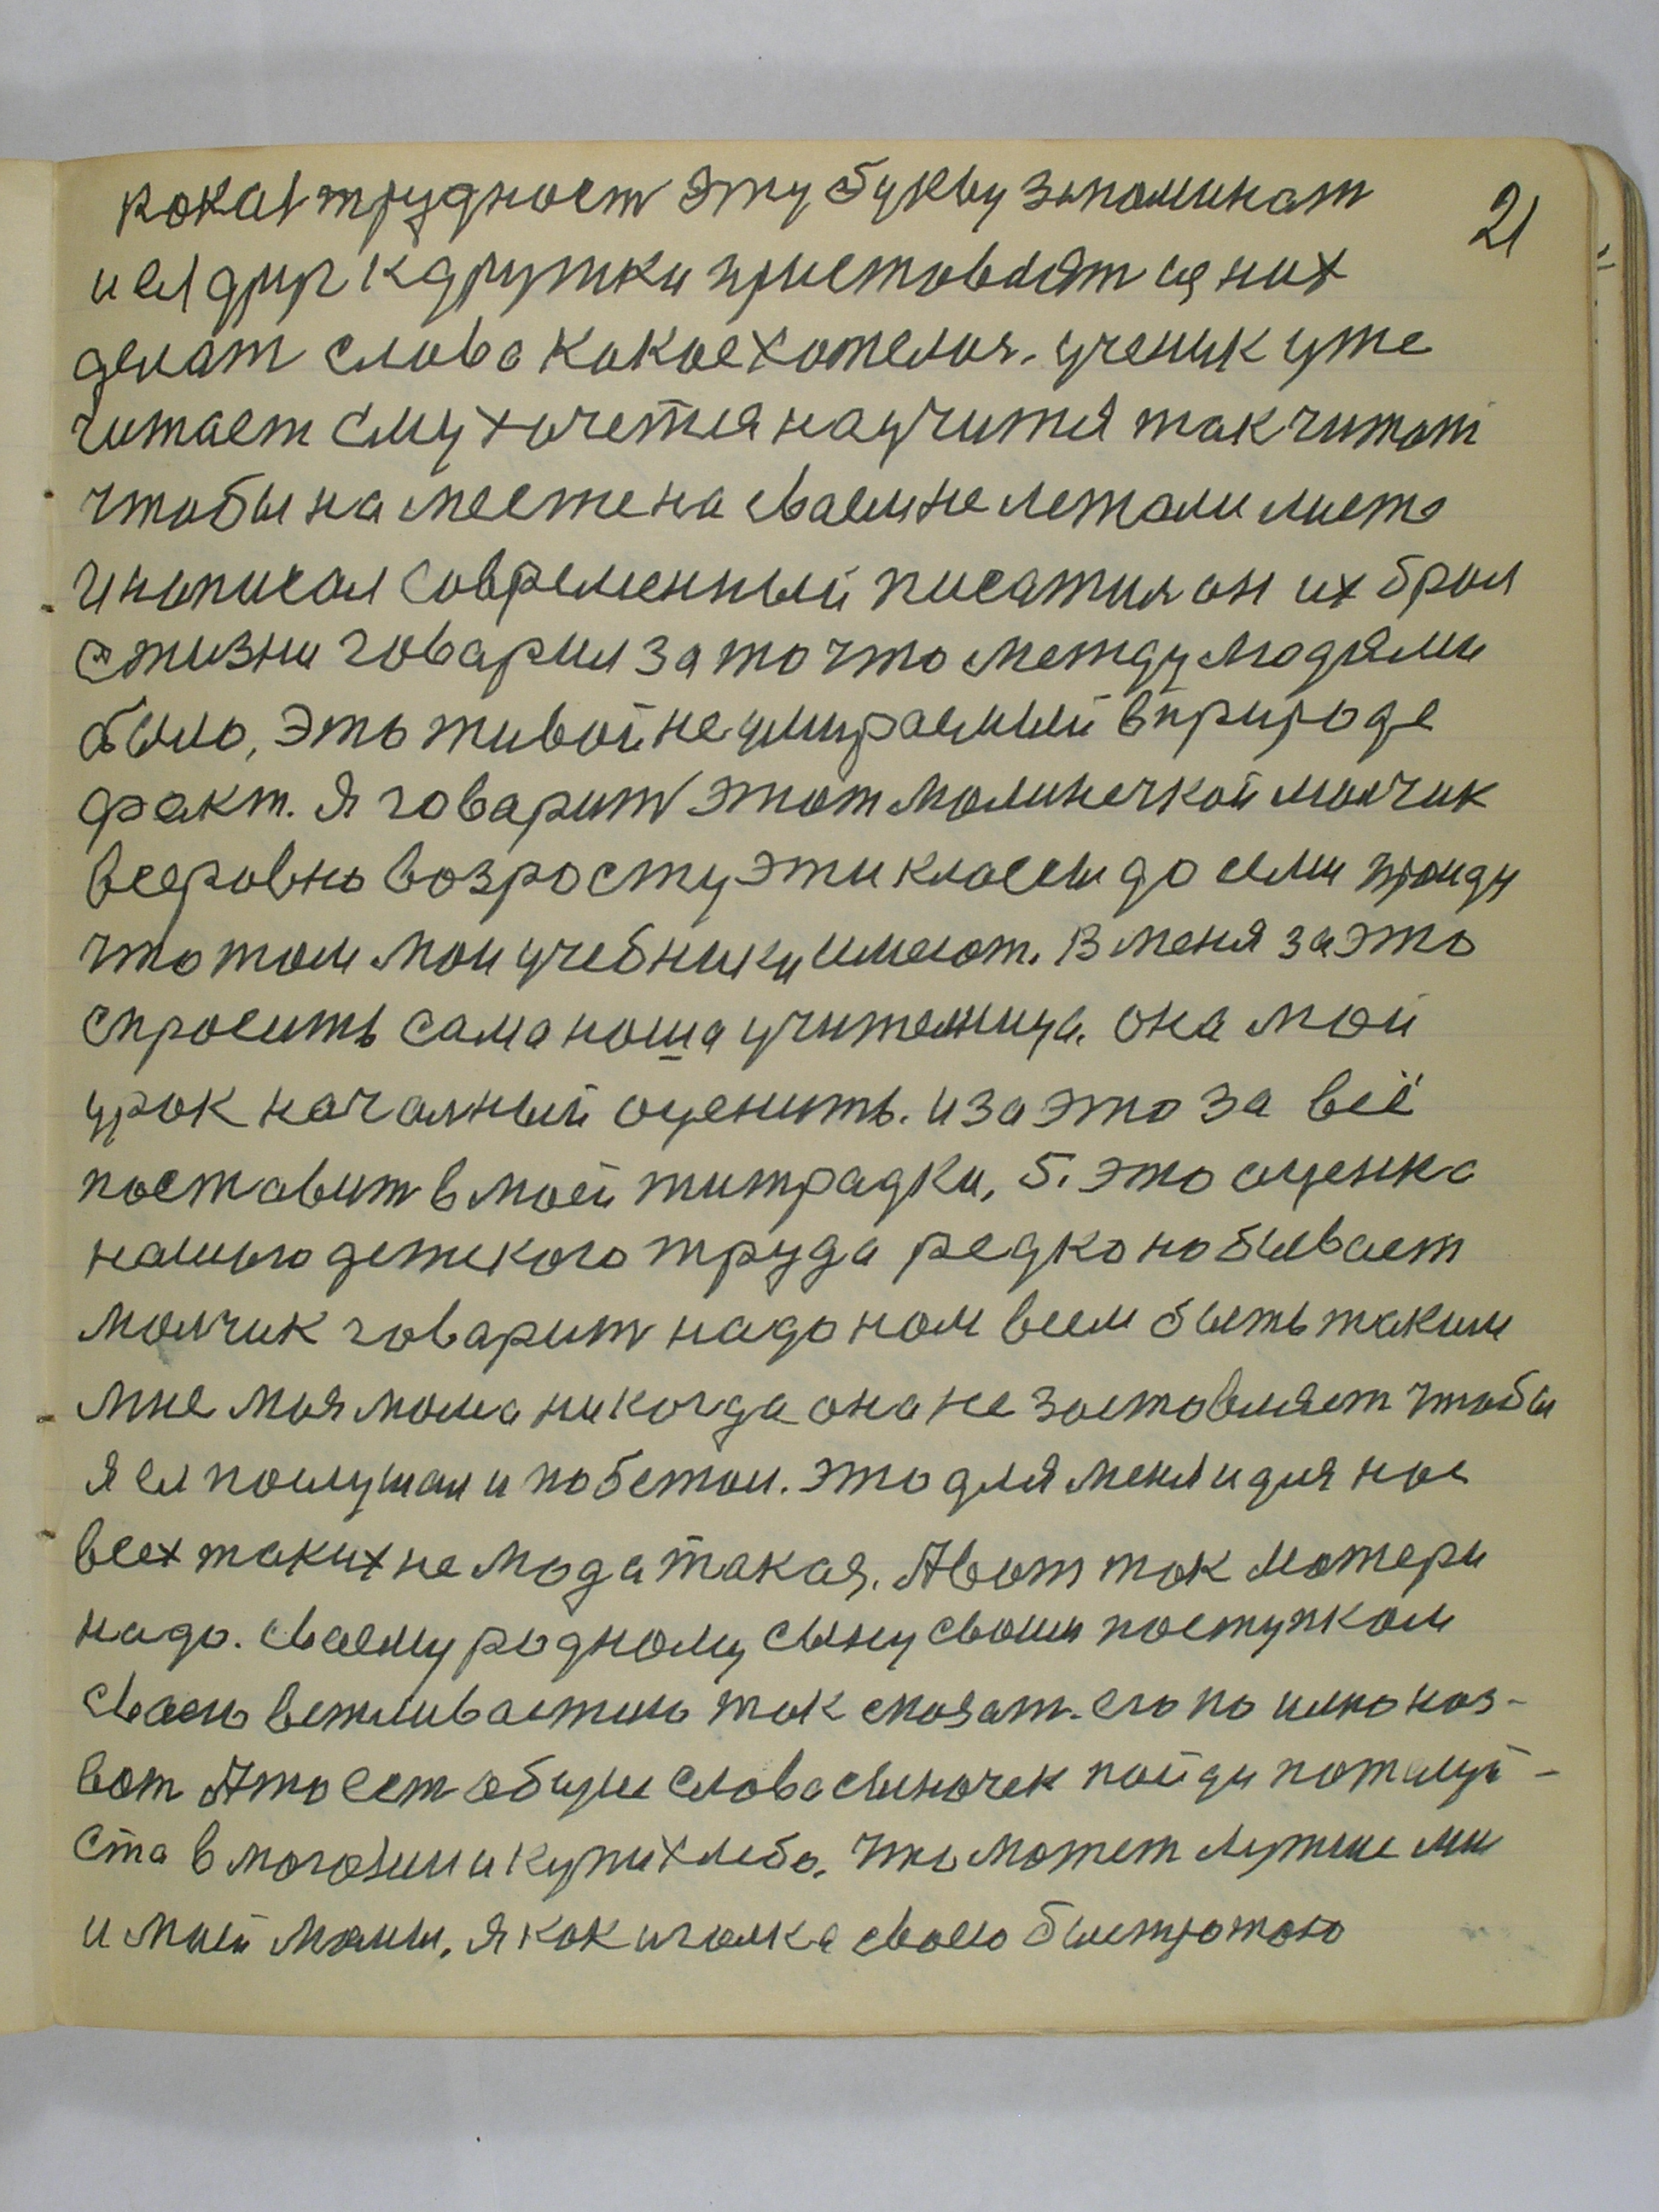 21
кокая трудност эту букву запоминат
и ея друг к дружки приставлят из них
делат слова какое хотелоя. ученик уже
читает ему хочетия научится так читат
чтобы на месте на сваем не летали листо
и нописал современный писатил он их брал
с жизни говарил за то что между людями
было, это живой не умираемый в природе
факт. Я говарит этот молинечкой молчик
всеровно возросту эти класси до семи пройду
что там мои учебники имеют. В меня за это
спросить сама наша учителница. она мой
урок начальный оценить. и за это за всё
поставит в моей титрадки, 5. это оценка
нашыго детского труда редко но бывает
молчик говарит надо нам всем быть таким
мне моя мама никогда она не заставляет чтобы
я ея послушал и побежал. это для меня и для нас
всех таких не мода такая. А вот так матери
надо. сваему родному сыну своим поступком
сваею вежливастию так сказат. его по имю наз-
вот А то ест общие слова сыночек пойди пожалуй-
ста в могазин и купи хлеба. что может лутше мы
и моей мамы, я как иголка своею быстротою